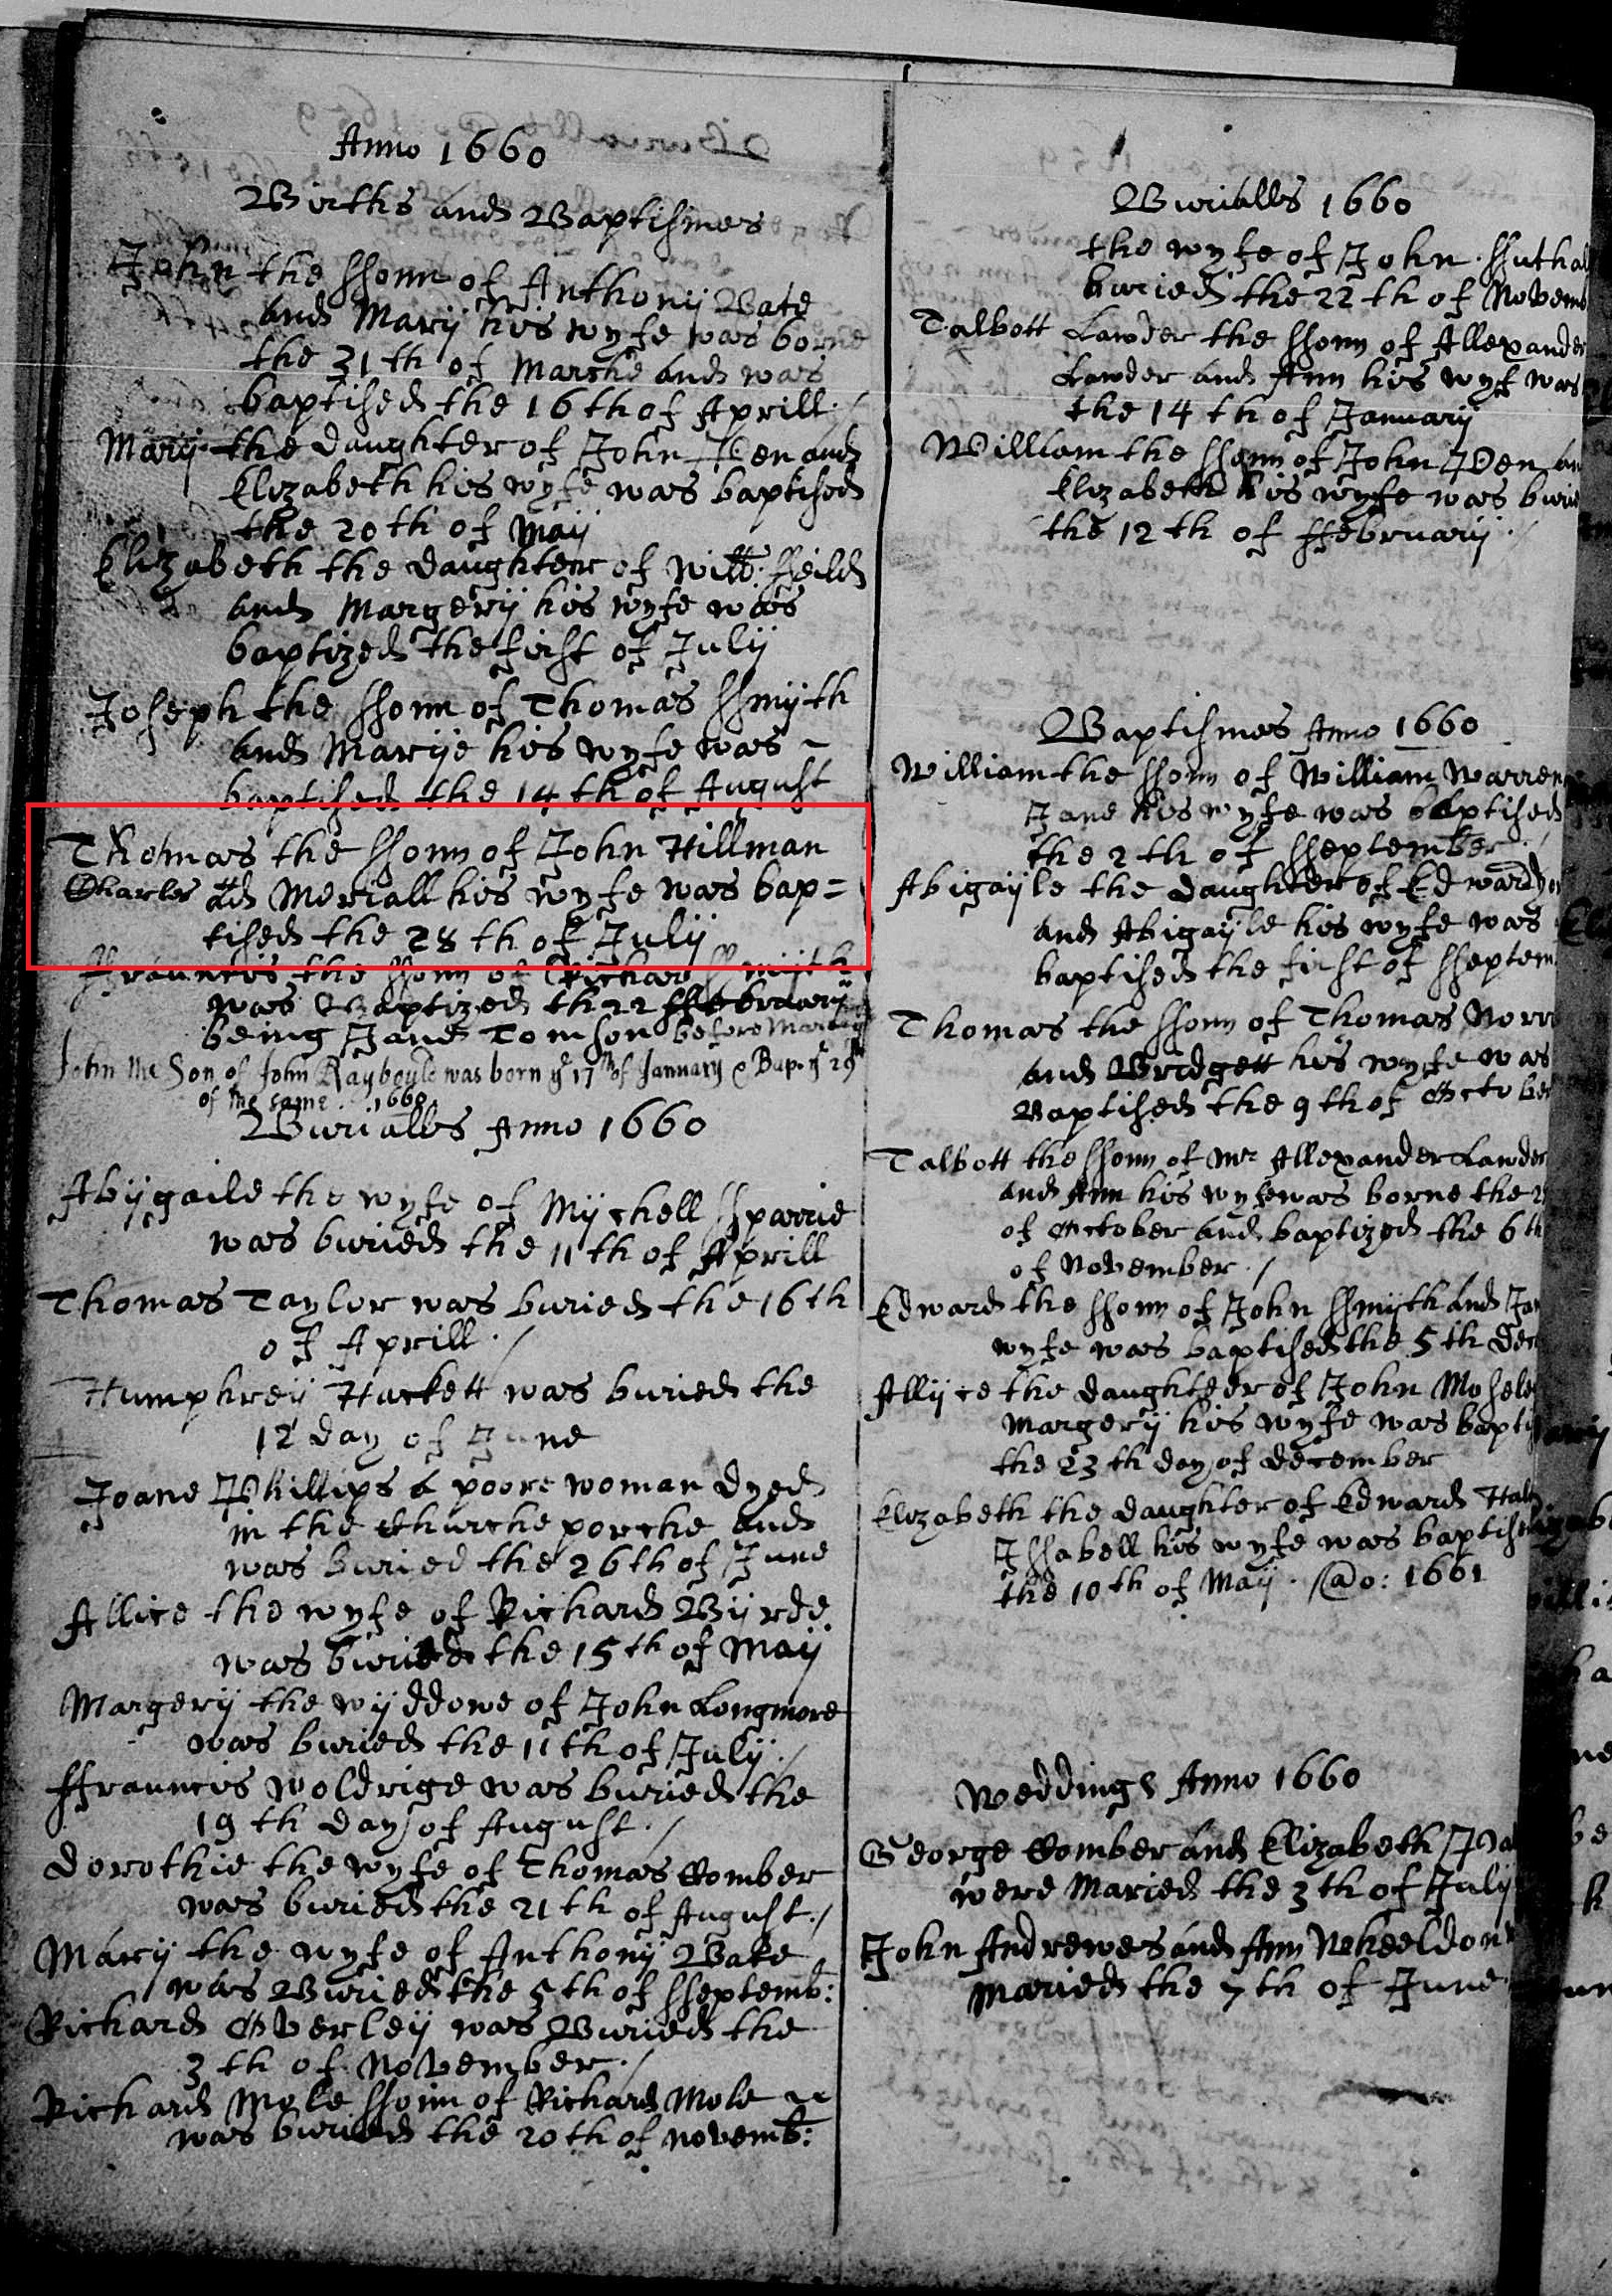 Anno 1660
Birthes and Baptismes
John the ssonn of Anthony Bate
and Mary his wyfe was borne
the 31th of Marche and was
baptised the 16th of Aprill
Mary the daughter of John Pen and
Elizabeth his wyfe was baptised
the 20th of May
Elizabeth the daughter of Will: ffeild
and Margery his wyfe was
baptized the first of July
Joseph the ssonn of Thomas Ssmyth
and Marye his wyfe was ~
baptised the 14th of August
Thomas the ssonn of John Hillman
Charles and Meriall his wyfe was bap=
tised the 28th of July
ffrauncis the ssonn of Richard Ssmyth
was Baptized th 22 ffebruary
being Jane Tomson before
John the Son of John Rayboule was born ye 17th of January & Bap. ye 29th
of the same. 1660
Burialls Anno 1660
Abygaile the wyfe of Mychell Sparrie
was buried the 11th of Aprill
Thomas Taylor was buried the 16th
of Aprill
Humphrey Hackett was buried the
12 day of June
Joane Phillips a poore woman dyed
in the Churche porche and
was buried the 26th of June
Allice the wyfe of Richard Byrde
was buried the 15th of May
Margery the wyddowe of John Longmore
was buried the 11th of July
ffrauncis Woldrige was buried the
19th day of August
Dorothie the wyfe of Thomas Comber
was buried the 21th of August
Mary the wyfe of Anthony Bate
was Buried the 5th of Sseptemb:
Richard Overley was Buried the
3th of November
Richard Mole ssonn of Richard Mole
was buried the 20th of novemb:
Burialls 1660
the wyfe of John
buried the 22th of Novemb
Talbott Lawder the ssonn of Allexander
Lawder and Ann his wyf was
the 14th of January
William the ssonn of John Pen an
Elizabeth his wyfe was buri
the 12th of ffebruary
Baptismes Anno 1660
William the ssonn of William Warren
Jane his wyfe was baptised
the 2th of Sseptember
Abigayle the daughter of Edward
and Abigayle his wyfe was
baptised the first of Sseptem
Thomas the ssonn of Thomas Norr
and Bridgett his wyfe was
Baptised the 9th of October
Talbott the ssonn of Mr Allexander Lawder
and Ann his wyfe was borne the 2
of October and baptized the 6th
of November
Edward the ssonn of John Ssmyth and Jan
wyfe was baptised the 5th Dec
Allyce the daughter of John Mosele
Margery his wyfe was bapti
the 23th day of December
Elizabeth the daughter of Edward
Issabell his wyfe was baptis
the 10th of May. Ao: 1661
Weddings Anno 1660
George Comber and Elizabeth
were Maried the 3th of July
John Andrewes and Ann Wheeldon
Maried the 7th of June